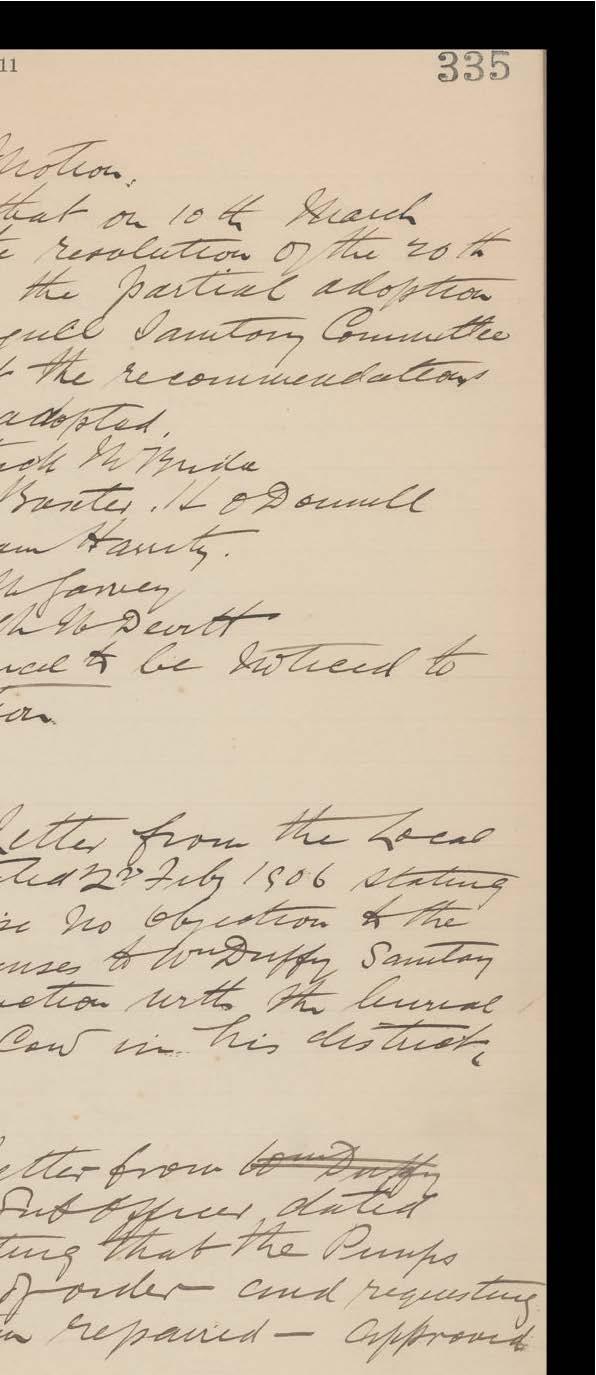 11
335
Motion.
that on 10th March
resolution of the 20th
the partial adoption
Sanitary Committee
the recommendations
adopted.
McBride
Baxter. H O'Donnell
Harrity.
McGarvey
McDevitt
to be noticed to
Letter from the Local
2nd Feby 1906 stating
no objection to the
to Wm Duffy Sanitary
with the burial
Cow in his district.
from Wm Duffy
Sub Officer dated
that the Pumps
of order and requesting
repaired — approved